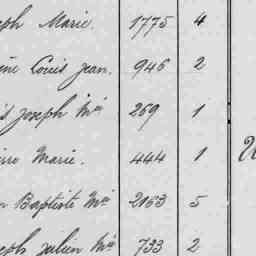 eph Marie. 1775 4
ène Louis Jean. 946 2
is Joseph Mie 269 1
erre Marie. 444 1
n Baptiste Mie 2163 5
seph Julien Mie 733 2